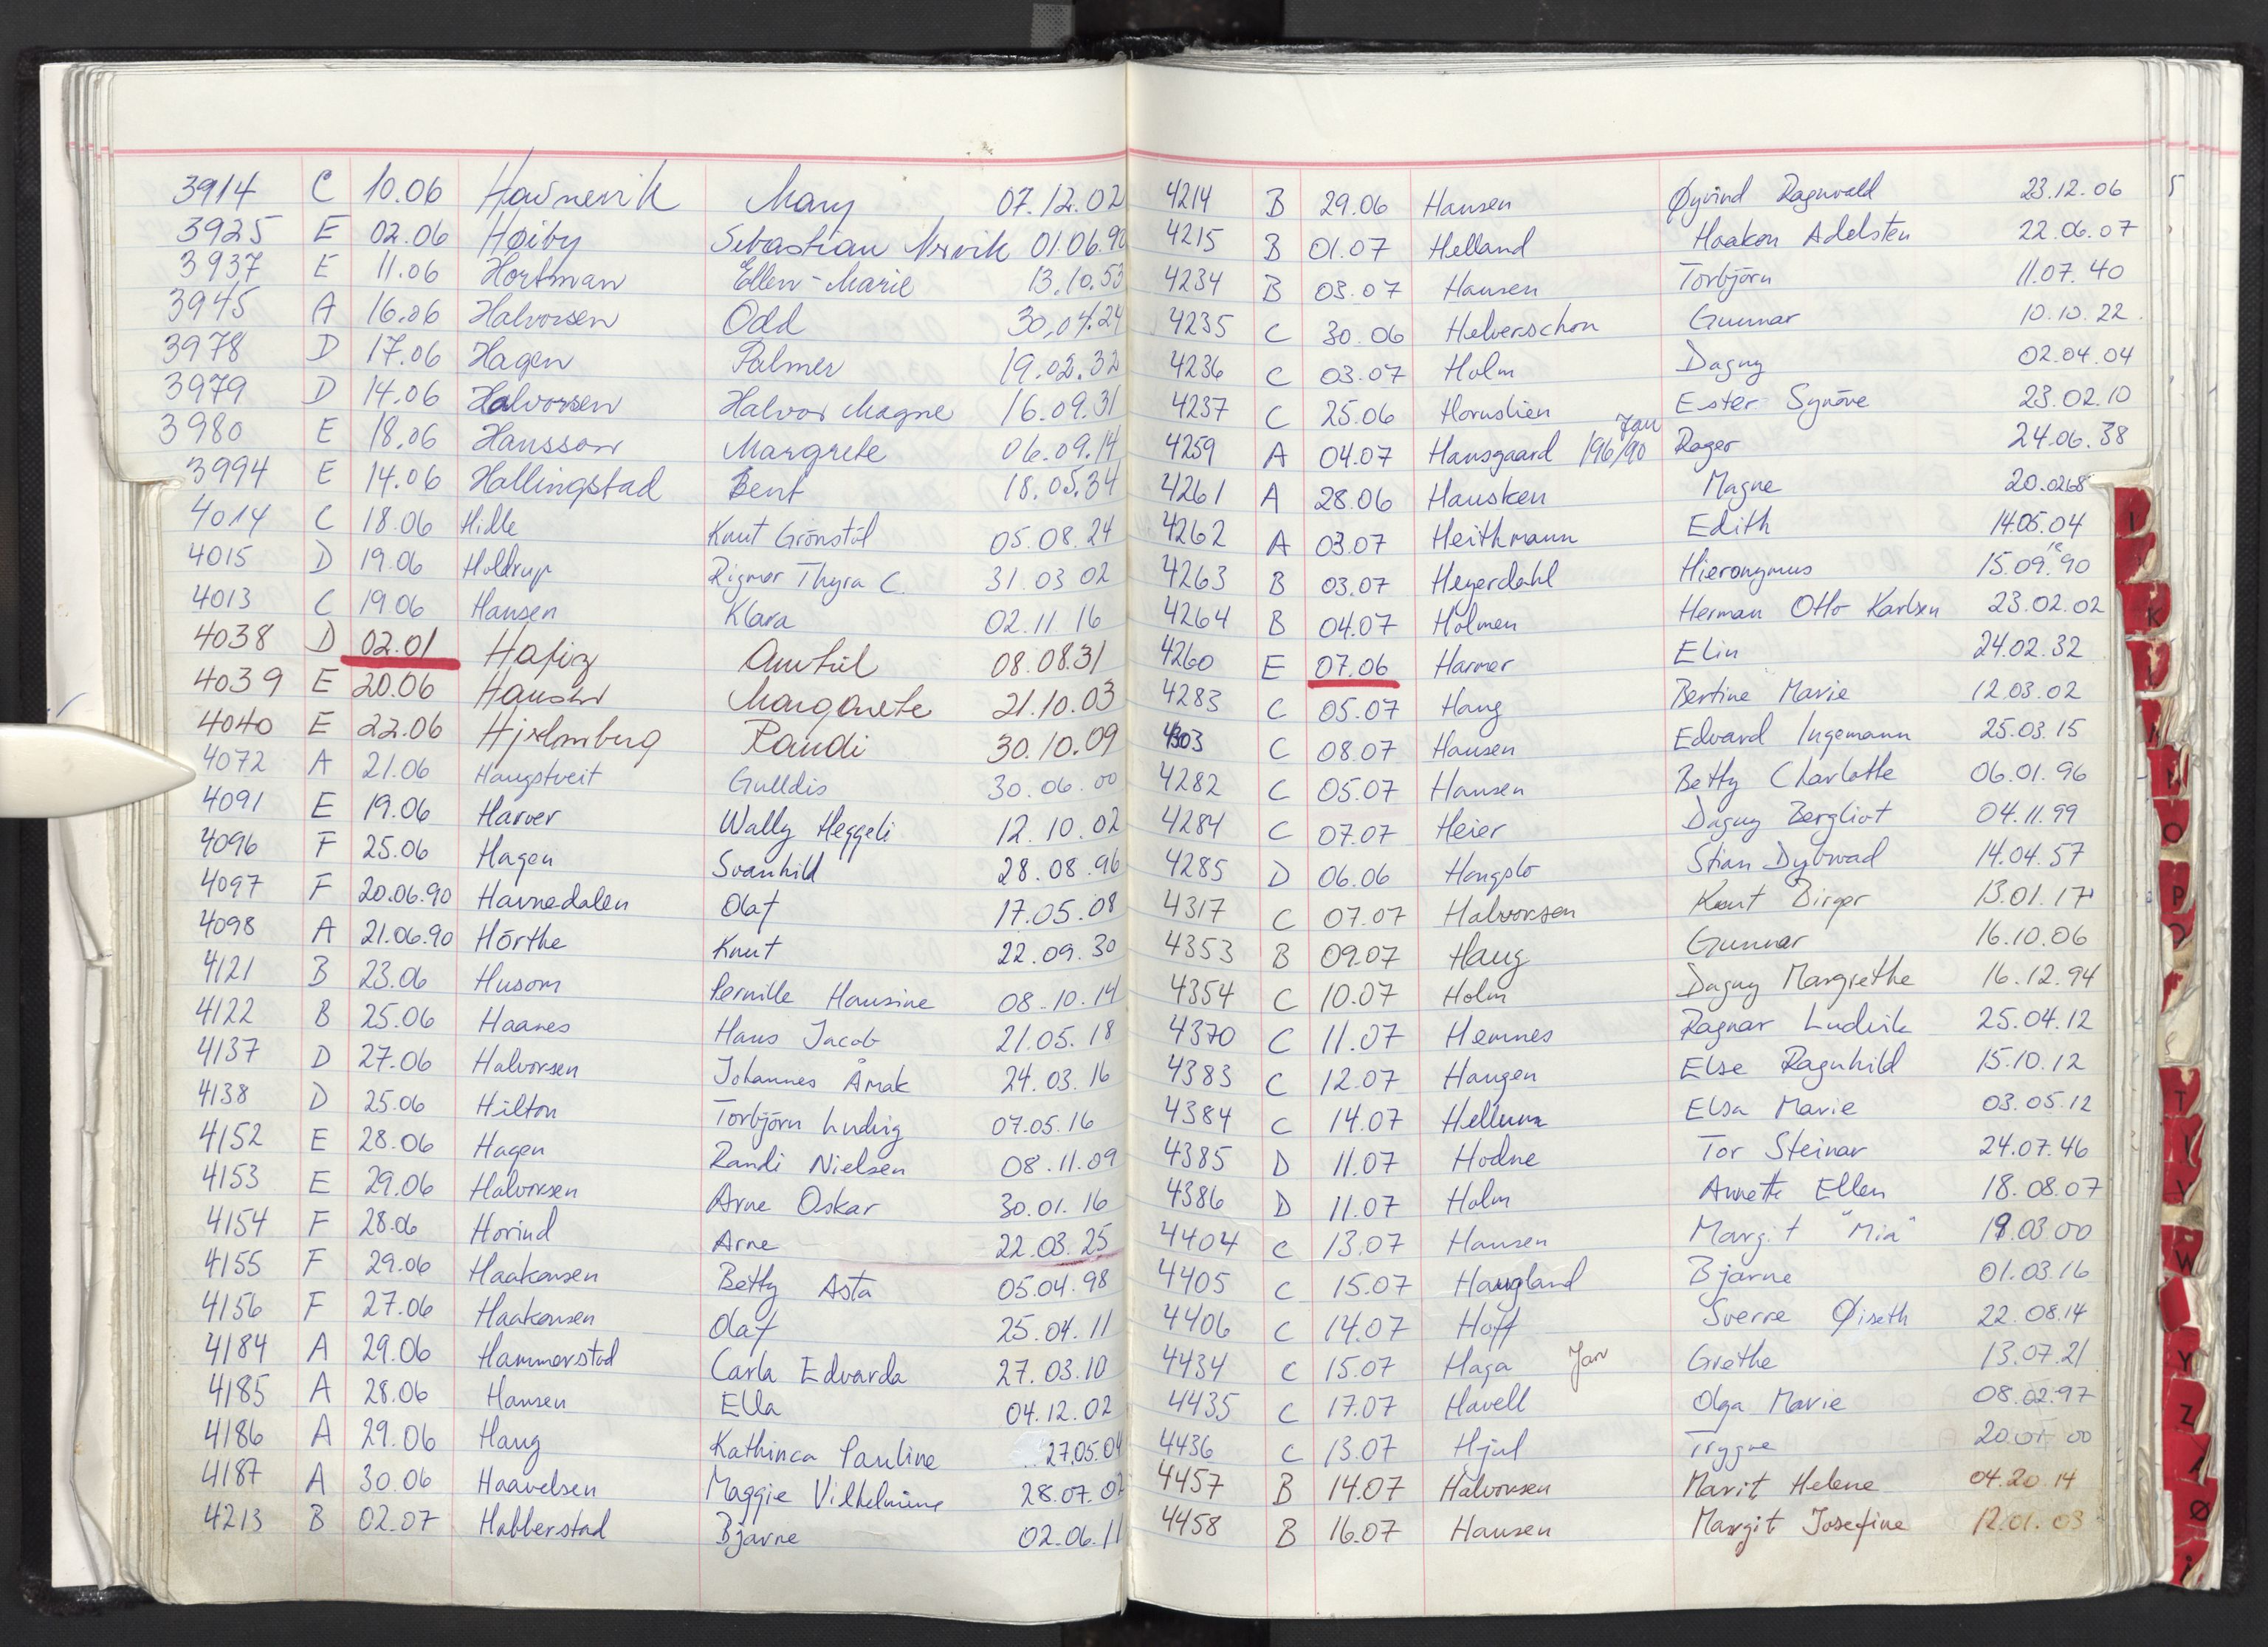 3914 C 10.06 Havnevik Mary 07.12.02
3925 E 02.06 Høiby Sebastian Nervik 01.06.90
3937 E 11.06 Hortman Ellen-Marie 13.10.53
3945 A 16.06 Halvorsen Odd 30.04.24
3978 D 17.06 Hagen Palmer 19.02.32
3979 D 14.06 Halvorsen Halvor Magne 16.09.31
3980 E 18.06 Hansson Margrete 06.09.14
3994 E 14.06 Hallingstad Bent 18.05.34
4014 C 18.06 Hille Knut Grönstöl 05.08.24
4015 D 19.06 Holdrup Rigmor Thyra C. 31.03 02
4013 C 19.06 Hansen Klara 02.11 16
4038 D 02.01 Hafiz 08.08.31
4039 E 20.06 Hansen Margarete 21.10.03
4040 E 22.06 Hjelmberg Randi 30.10.09
4072 A 21.06 Haugstveit Gulldis 30.06.00
4091 E 19.06 Harver Wally Heggeli 12.10.02
4096 F 25.06 Hagen Svanhild 28.08.96
4097 F 20.06.90 Havnedalen Olaf 17.05.08
4098 A 21.06.90 Hörthe Knut 22.09.30
4121 B 23.06 Husom Pernille Hansine 08.10.14
4122 B 25.06 Haanes Hans Jacob 21.05.18
4137 D 27.06 Halvorsen Johannes Åmak 24.03.16
4138 D 25.06 Hilton Torbjörn Ludvig 07.05.16
4152 E 28.06 Hagen Randi Nielsen 08.11.09
4153 E 29.06 Halvorsen Arne Oskar 30.01.16
4154 F 28.06 Horind Arne 22.03.25
4155 F 29.06 Haakonsen Betty Asta 05.04.98
4156 F 27.06 Haakonsen Olaf 25.04.11
4184 A 29.06 Hammerstad Carla Edvarda 27.03.10
4185 A 28.06 Hansen Ella 04.12.02
4186 A 29.06 Haug Kathinca Pauline 27.05.04
4187 A 30.06 Haavelsen Maggie Vilhelmine 28.07.02
4213 B 02.07 Habberstad Bjarne 02.06.11
4214 B 29.06 Hansen Øyvind Ragnvald 23.12.06
4215 B 01.07 Helland Haakon Adelsten 22.06.07
4234 B 03.07 Hansen Torbjörn 11.07.40
4235 C 30.06 Helverschon Gunnar 10.10.22
4236 C 03.07 Holm Dagny 02.04.04
4237 C 25.06 Hornslien Ester Synöve 23.02.10
4259 A 04.07 Hansgaard 196/90 Jan Roger 24.06.38
4261 A 28.06 Hausken Magne 20.0268
4262 A 03.07 Heithmann Edith 14.05.04
4263 B 03.07 Heyerdahl Hieronymus 15.09.90
4264 B 04.07 Holmen Herman Otto Karlsen 23.02.02
4260 E 07.06 Harmer Elin 24.02.32
4283 C 05.07 Haug Bertine Marie 12.03.02
4303 C 08.07 Hansen Edvard Ingemann 25.03.15
4282 C 05.07 Hansen Betty Charlotte 06.01.96
4284 C 07.07 Heier Dagny Bergliot 04.11.99
4285 D 06.06 Hougslo Stian Dybwad 14.04.57
4317 C 07.07 Halvorsen Knut Birger 13.01.17
4353 B 09.07 Haug Gunnar 16.10.06
4354 C 10.07 Holm Dagny Margrethe 16.12.94
4370 C 11.07 Hemnes Ragnar Ludvik 25.04.12
4383 C 12.07 Haugen Else Ragnhild 15.10.12
4384 C 14.07 Hellum Elsa Marie 03.05.12
4385 D 11.07 Hodne Tor Steinar 24.07.46
4386 D 11.07 Holm Annette Ellen 18.08.07
4404 C 13.07 Hansen Margit "Mia" 19.03.00
4405 C 15.07 Haugland Bjarne 01.03.16
4406 C 14.07 Hoff Sverre Øiseth 22.08.14
4434 C 15.07 Haga Jan Grethe 13.07.21
4435 C 17.07 Havell Olga Marie 08.02.97
4436 C 13.07 Hjul Trygve 20.01 00
4457 B 14.07 Halvorsen Marit Helene 04.20.14
4458 B 16.07 Hansen Margit Josefine 12.01.03
I
K
L
O
P
T
V
W
Y
Z
Ø